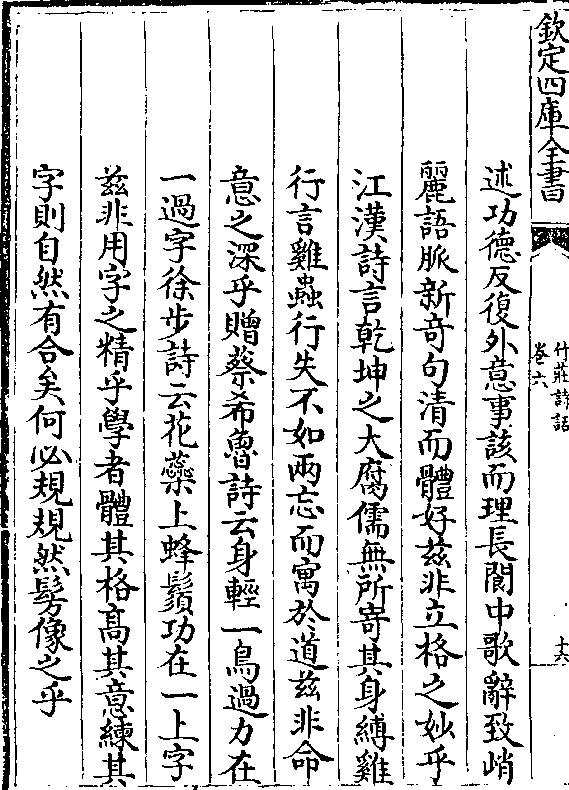 欽定四庫全書
竹莊詩話
卷六
十六
述功德反復外意事該而理長閬中歌辭致峭
麗語脈新竒句清而體好茲非立格之妙乎
江漢詩言乾坤之大腐儒無所寄其身縛雞
行言雞蟲行失不如兩忘而寓於道茲非命
意之深乎贈蔡希魯詩云身輕一鳥過力在
一過字徐步詩云花蘂上蜂鬚功在一上字
茲非用字之精乎學者體其格高其意練其
字則自然有合矣何必規規然髣像之乎